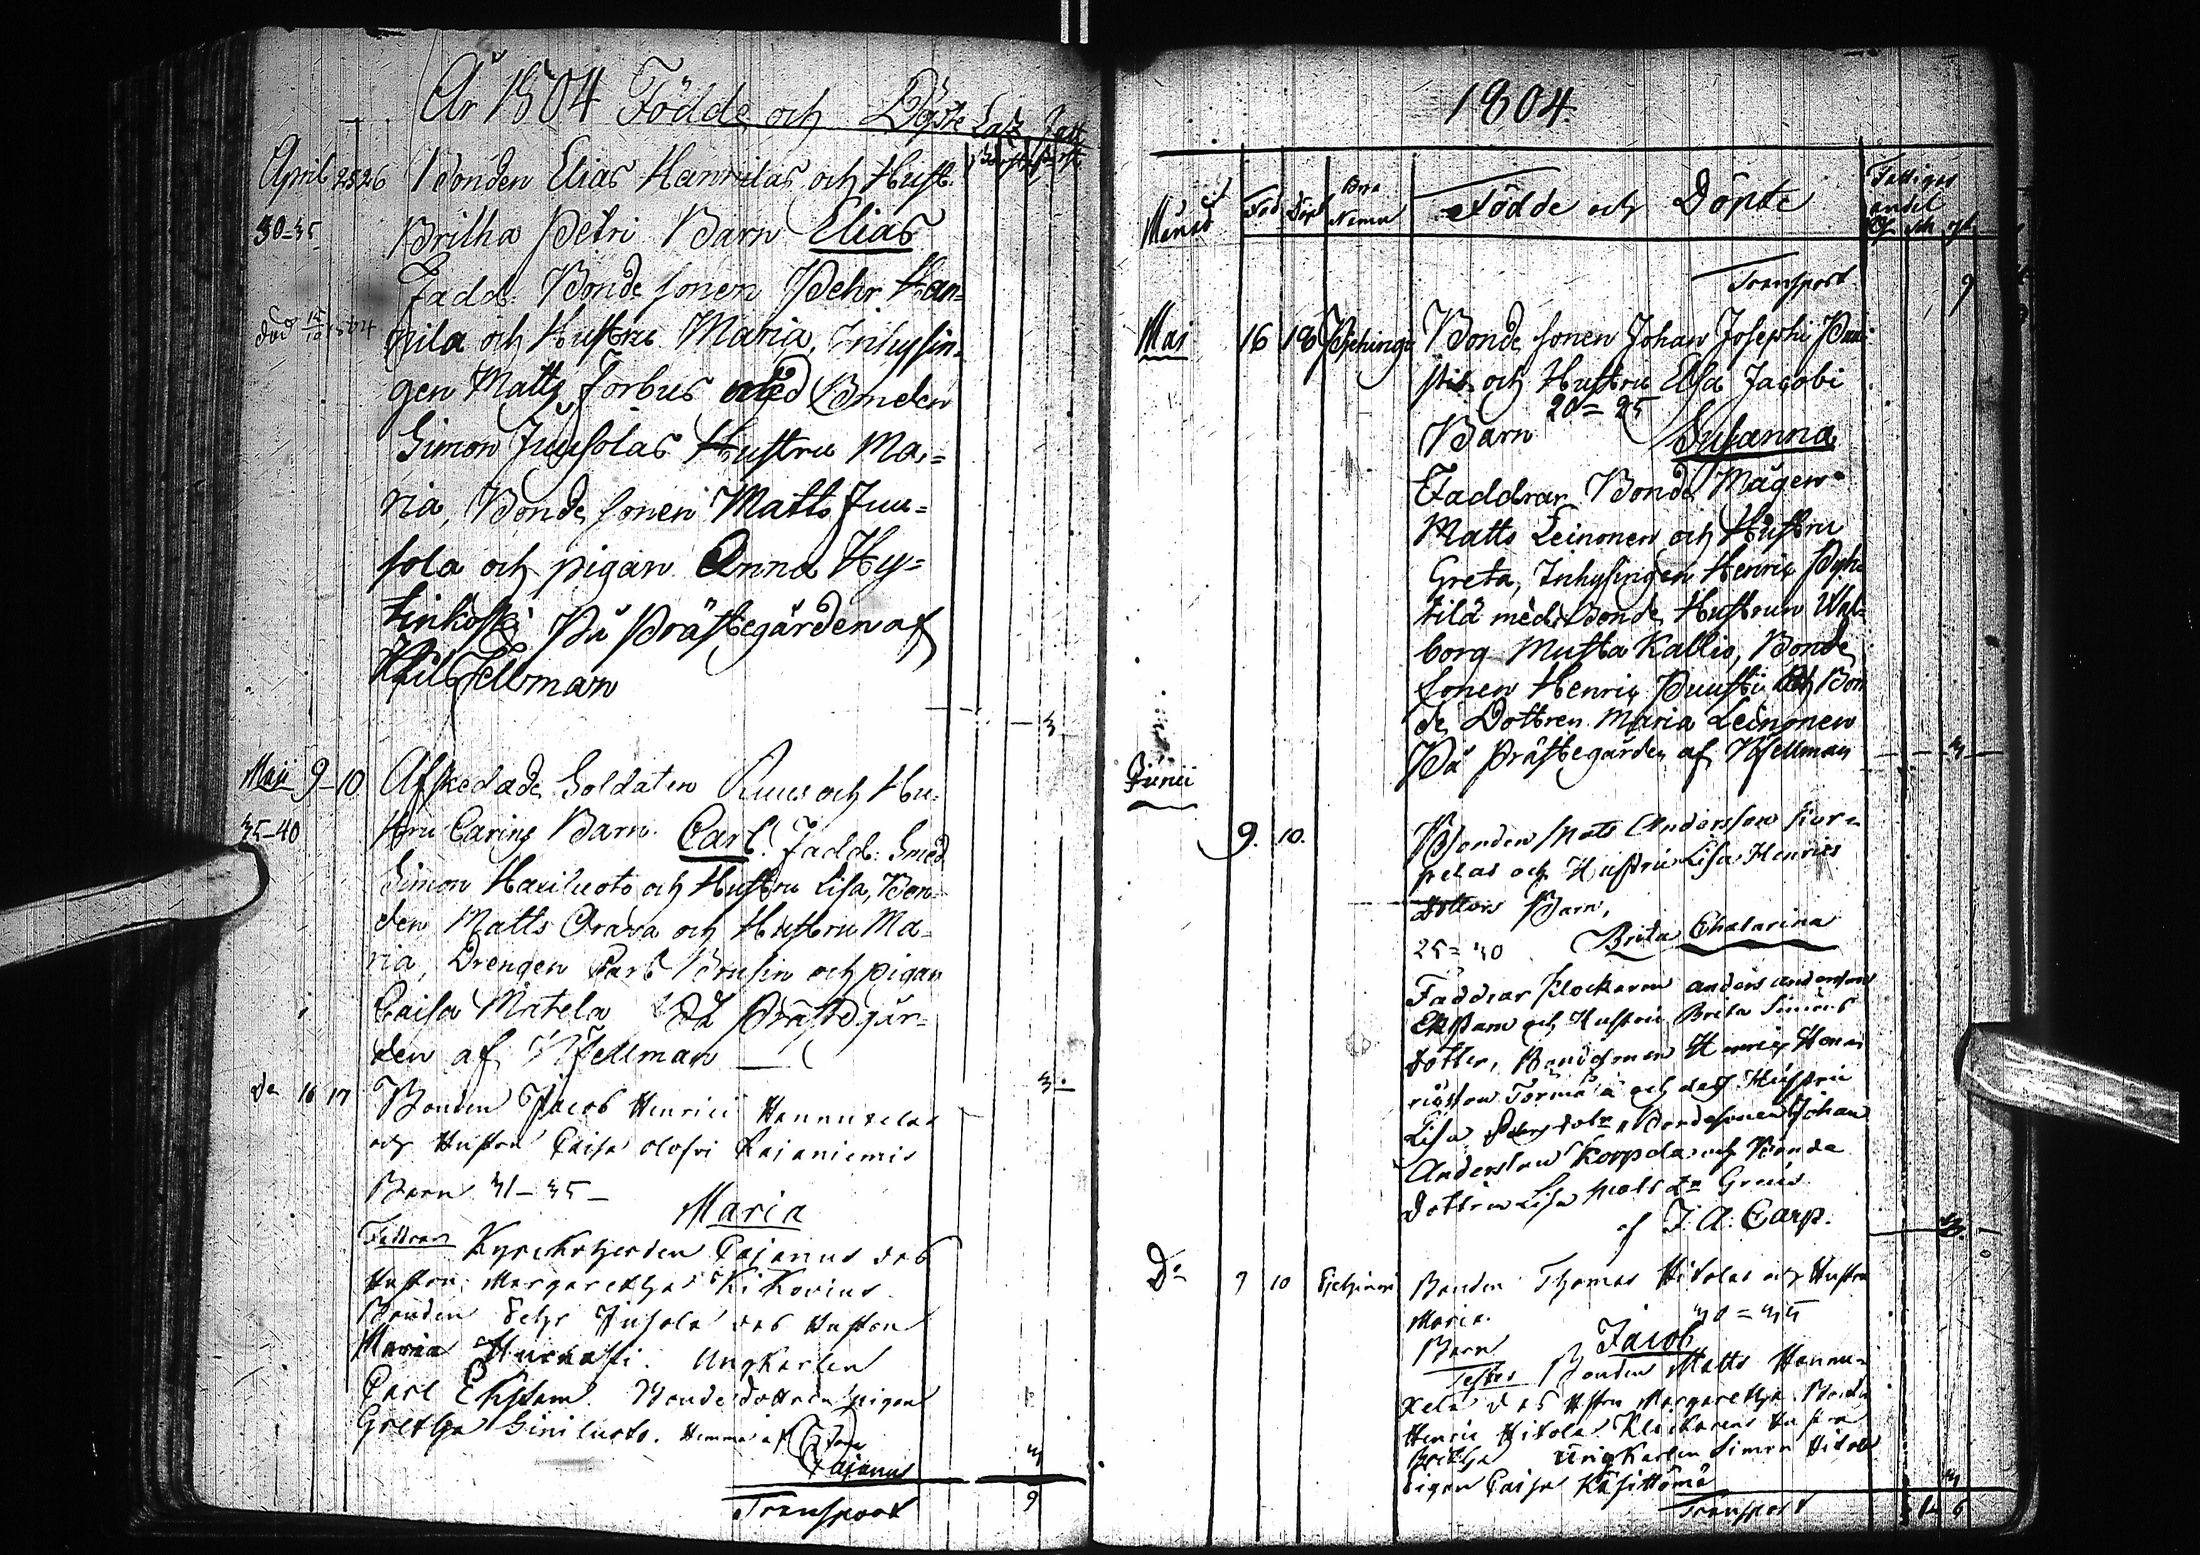 År 1804 Födde och Döpte
April 25 26 Bonden Elias Hannilas och Hust.
30-35 Britha Petri Barn Elias
Fadd: Bonde sonen Pehr Han=
nila och Hustru Maria, Inhysin=
gen Matts Forbus med Bonden
Simon Juusolas Hustru Ma=
ria, Bonde sonen Matts Juu=
sola och pigan Anna Hy=
På Prästegården af
Fellman
3
Maji 9-10 Afskedade Soldaten Ruus och Hu=
35-40 stru Carins Barn Carl. Fadd: Smed
Simon Hauluoto och Hustru Lisa, Bon=
den Matts Orava och Hustru Ma=
ria, Drengen Carl Brusin och pigan
Caisa Matela På Prästegår=
den af Fellman
3
Do 16 17 Bonden Jacob Henrici Hannukelas
och Hustru Caisa Olofsi Kajaniemis
Barn 31-35-
Maria
Faddrar Kyrckoherden Cajanus dess
Hustru Margaretha
Bonden Pehr Jusola des Hustru
Maria Ungkarlen
Carl Ekstam. Bondedottren pigan
Gretha Siniluoto. Hemma af
Cajanus
3
Transport 9
1804
Månad Född Döpt Byns Namn Födde och Döpte Fattiges andel
Transport 9
Mai 16 18 Bonde sonen Johan Josephi
och Hustru Elsa Jacobi
20=25
Barn Susanna
Faddrar Bonde Mågen
Matts Leinonen och Hustru
Greta, Inhysingen Henric
med Bonde Hustrun Wal=
borg Musta Kallio, Bonde
sonen Henric Puusti och Bon
de Dottren Maria Leinonen
På Prästegården af Fellman
3
Junii
9. 10. Bonden Mats Andersson
och Hustru Lisa Henrics
dotters Barn,
25=30 Brita Chatarina
Faddrar Klockaren Anders Andersson
Ekstam och Hustru Brita Simons
dotter, Bondesonen Henric Hen
ricsson Törmä och dess Hustru
Lisa Bondesonen Johan
Andersson Korpela och Bonde
dottren Lisa Mats Greus
af J. A. Carp.
3
Do 9 10 Bonden Thomas Hitolas och Hustru
Maria. 30=35
Barn Jacob
Testes Bonden Matts Hannu=
kela des Hstru Margaretha Bonden
Henric Hitola Klockarens Hustru
Bretha Ungkarlen Simon Hitola
Pigan Caisa
3
Transport